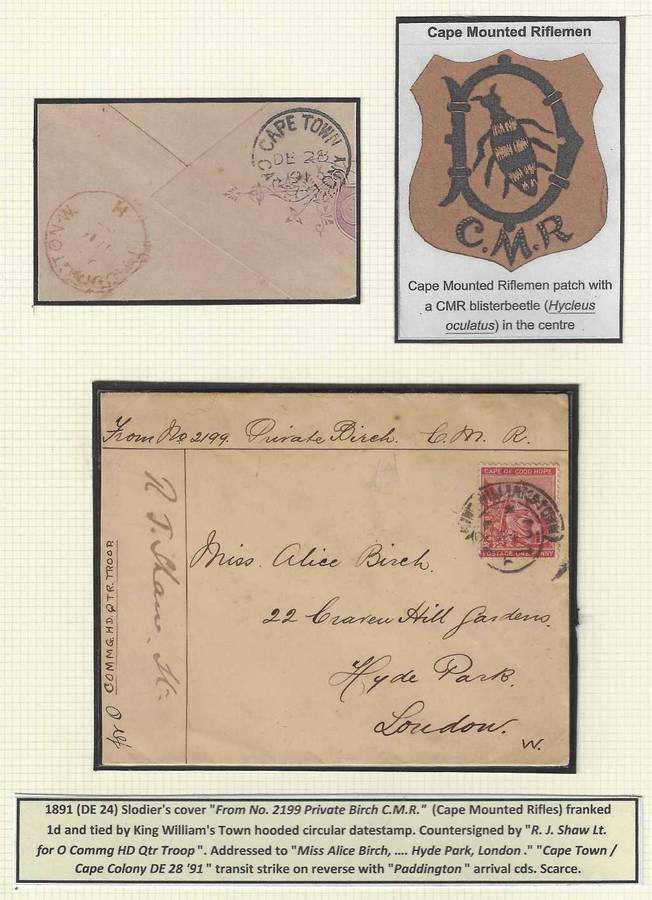 Cape Mounted Riflemen
C.M.R
Cape Mounted Riflemen patch with
a CMR blisterbeetle (Hycleus
oculatus) in the centre
CAPE TOWN
DE 28
91
From No 2199. Private Birch. C. M. R.
CAPE OF GOOD HOPE
POSTAGE ONE PENNY
Miss. Alice Birch.
22 Craven Hill Gardens.
Hyde Park.
London.
W.
R J. Shaw. Lt.
for O COMMG. HD. QTR. TROOP
1891 (DE 24) Slodier's cover "From No. 2199 Private Birch C.M.R." (Cape Mounted Rifles) franked
1d and tied by King William's Town hooded circular datestamp. Countersigned by "R. J. Shaw Lt.
for O Commg HD Qtr Troop". Addressed to "Miss Alice Birch, .... Hyde Park, London." "Cape Town /
Cape Colony DE 28 '91" transit strike on reverse with "Paddington" arrival cds. Scarce.